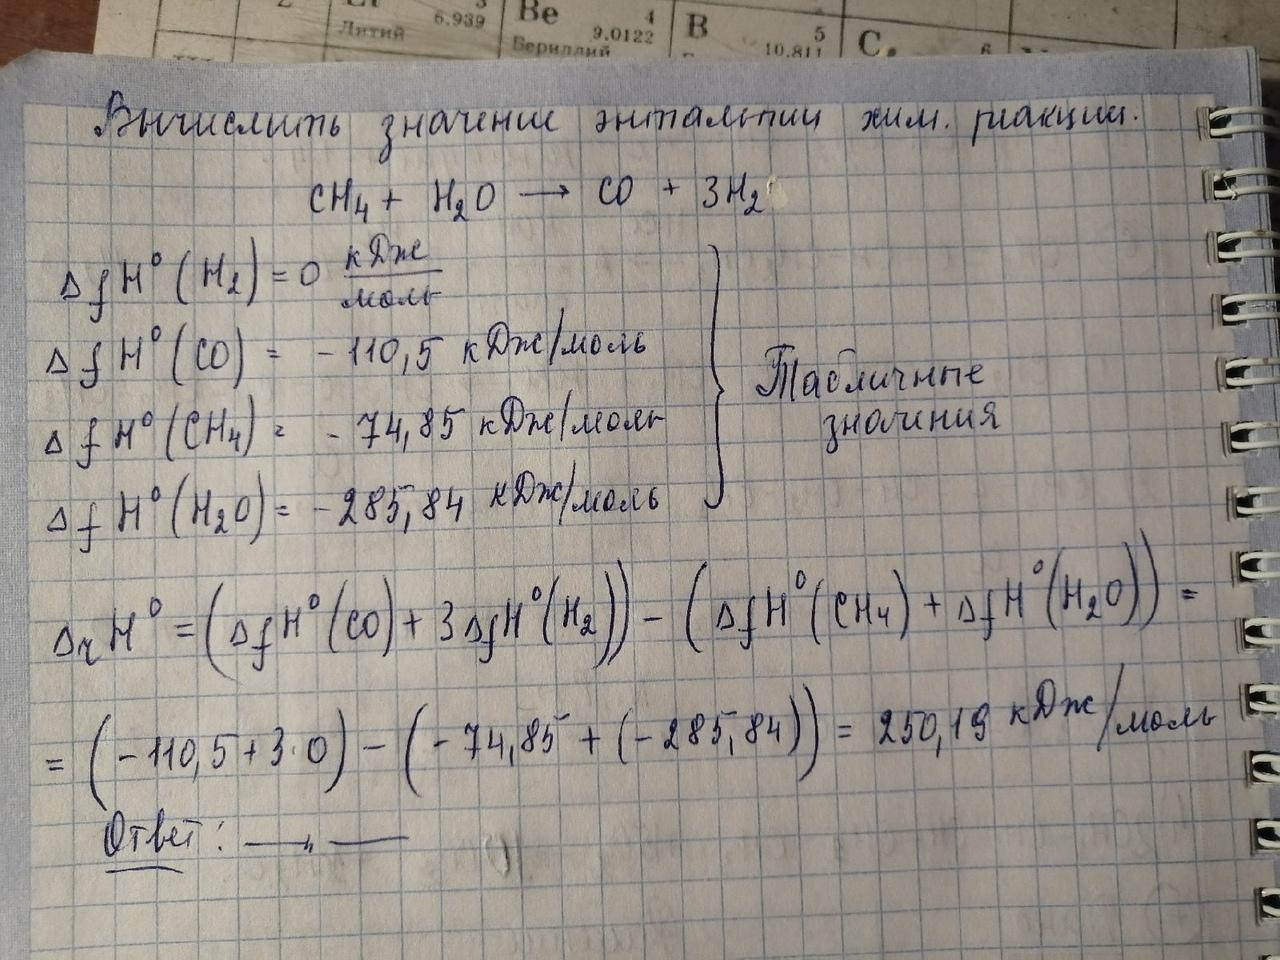 3
6.939
Литий
Be 4
9.0122
Бериллий
B 5
10.811
C 6
Вычислить значение энтальпии хим. реакции.
CH₄ + H₂O → CO + 3H₂
ΔfH⁰(H₂) = 0 кДж/моль
ΔfH⁰(CO) = -110,5 кДж/моль
ΔfH⁰(CH₄) = -74,85 кДж/моль
ΔfH⁰(H₂O) = -285,84 кДж/моль
Табличные
значения
ΔrH⁰ = (ΔfH⁰(CO) + 3ΔfH⁰(H₂)) - (ΔfH⁰(CH₄) + ΔfH⁰(H₂O)) =
= (-110,5 + 3·0) - (-74,85 + (-285,84)) = 250,19 кДж/моль
Ответ: —„—